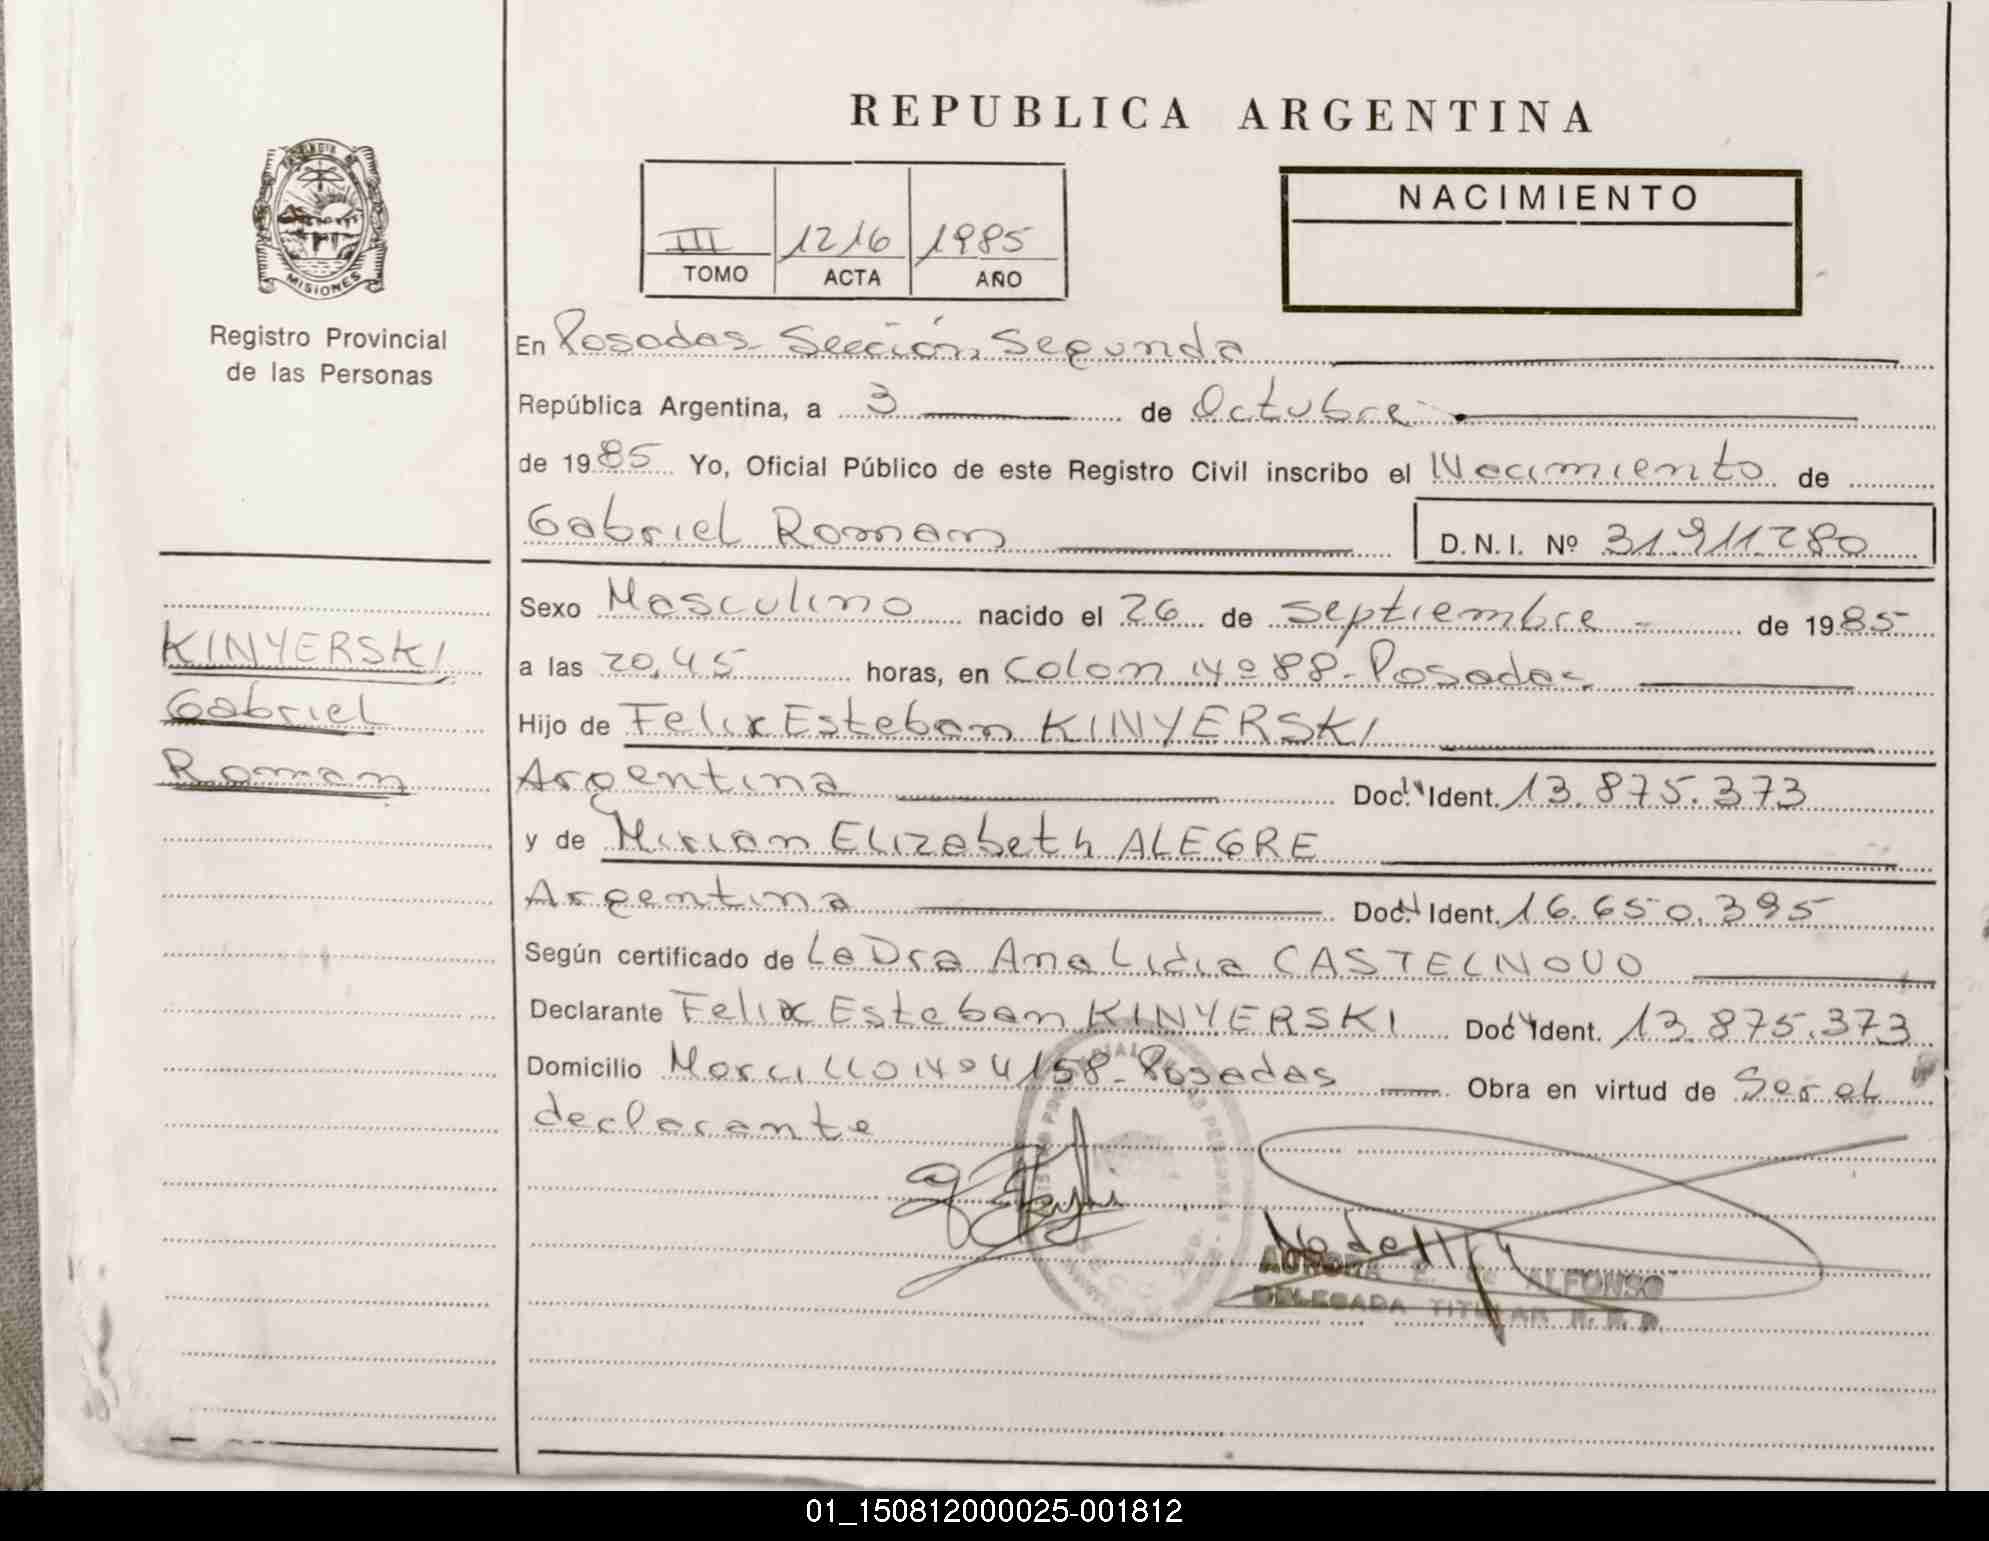 REPUBLICA ARGENTINA
PROVINCIA DE
MISIONES
Registro Provincial
de las Personas
NACIMIENTO
III 1216 1985
TOMO ACTA AÑO
En Posadas - Sección, Segunda
República Argentina, a 3 de Octubre -
de 1985 Yo, Oficial Público de este Registro Civil inscribo el Nacimiento de
Gabriel Roman D.N.I. Nº 31.911.280
KINYERSKI
Gabriel
Roman
Sexo Masculino nacido el 26 de septiembre - de 1985
a las 20,45 horas, en Colon Nº 88 - Posadas
Hijo de Felix Esteban KINYERSKI
Argentina Doc. Ident. 13.875.373
y de Mirian Elizabeth ALEGRE
Argentina Doc. Ident. 16.650.395
Según certificado de La Dra Ana Lidia CASTELNOVO
Declarante Felix Esteban KINYERSKI Doc. Ident. 13.875.373
Domicilio Morcillo Nº 4158 - Posadas Obra en virtud de Ser el
declarante
AURORA de ALFONSO
DELEGADA TITULAR R. P. P.
01_150812000025-001812